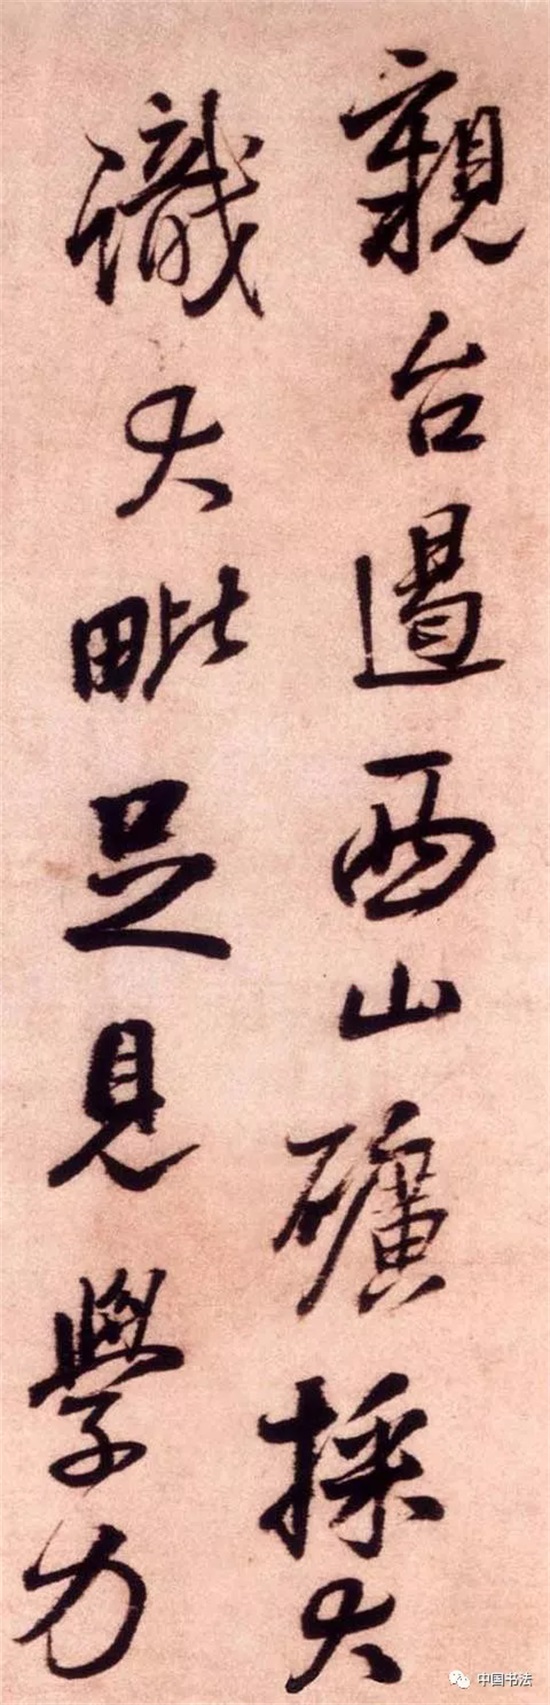 親台遏西山礦採大
識大毗足見學力
中国书法